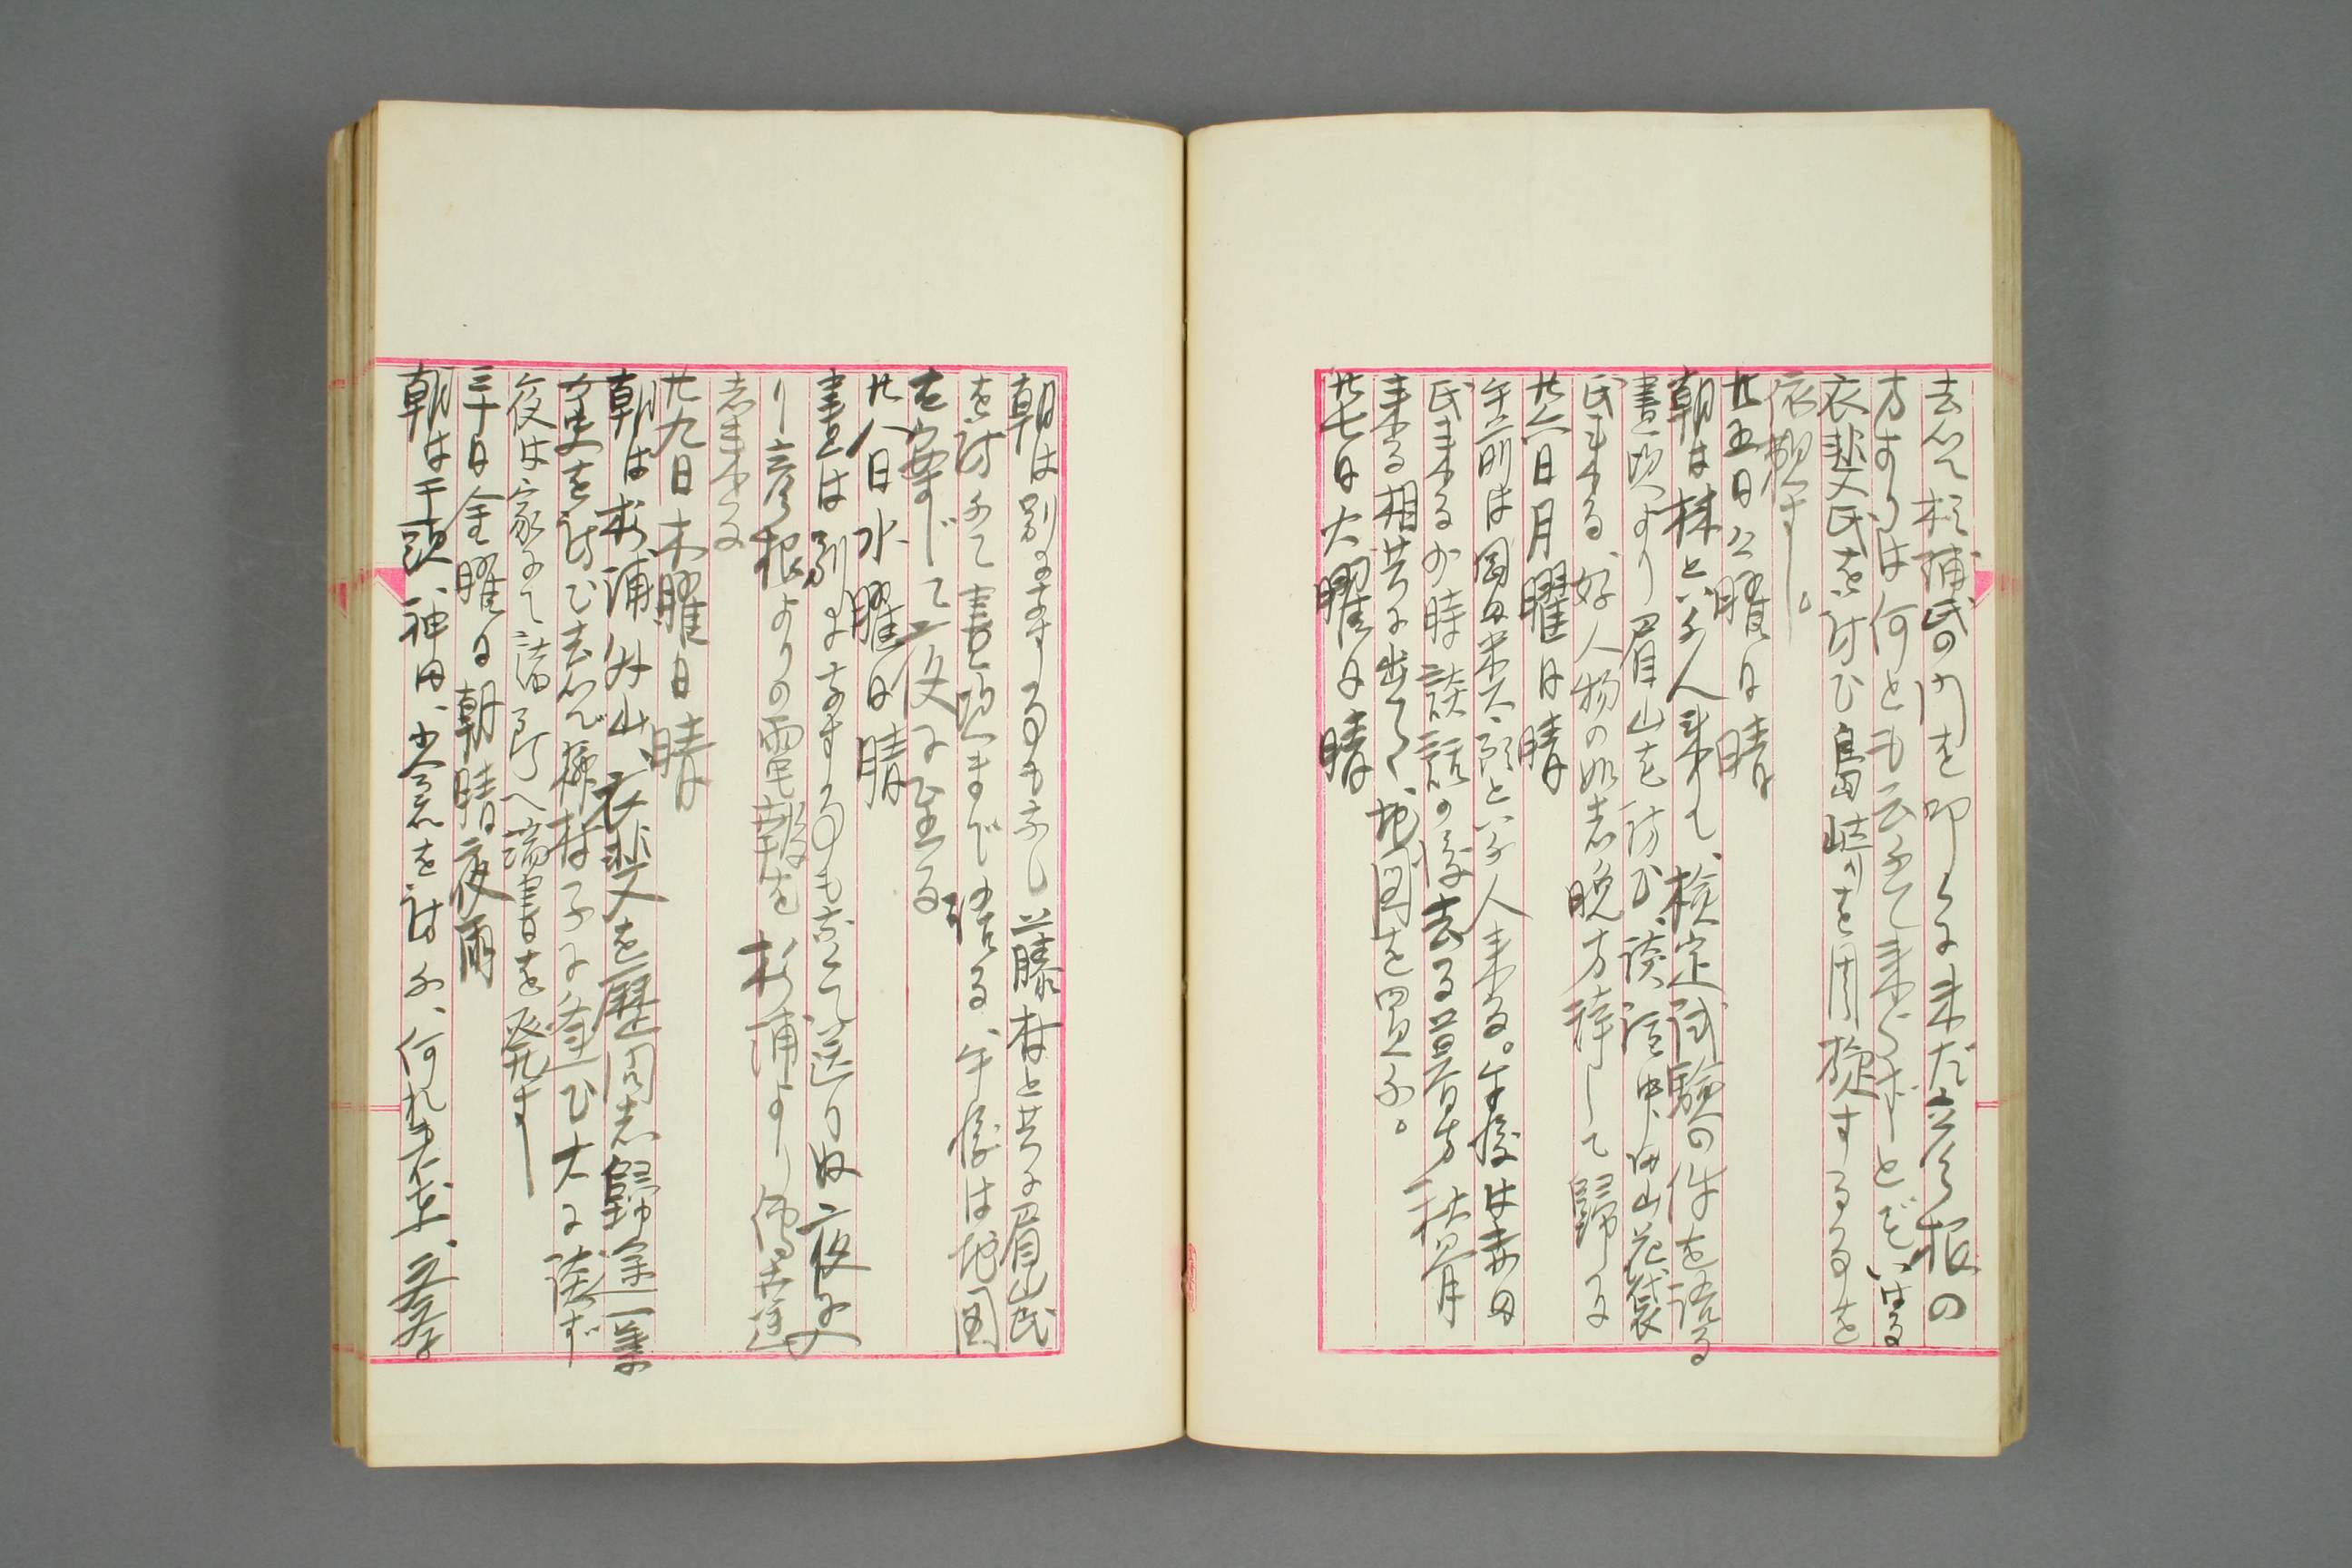 去つて杉浦氏の門を叩くに未だ彦根の
方よりは何とも云ふて来らずとぞいはる
衣斐氏を訪ひ島崎を周旋する事を
依頼す。
廿五日 日曜日 晴
朝は林といふ人来りて、検定試験の件を語る
昼頃より眉山を訪ひ、談話中田山花袋
氏来る、好人物の如し晩方辞して帰る
廿六日月曜日 晴
午前は岡田来太郎といふ人来る。午後は柴田
氏来る少時談話の後去る昔方秋骨
来る相共に出て、地図を買ふ。
廿七日火曜日 晴
朝は別にする事もなし藤村と共に眉山氏
を訪ふて昼頃まで語る、午後は地図
を案じて夜に至る
廿八日水曜日 晴
昼は別になす事もなくて送りぬ夜に入
り彦根よりの電報を杉浦より傳達
し来る
廿九日木曜日 晴
朝は杉浦外山、衣斐を歴問し歸途一葉
女史を訪ひ去んで藤村子に逢ひ大に談ず
夜は家にて諸所へ端書を発す
三十日金曜日 朝晴夜雨
朝は干頭、神田、小倉を訪ふ、何れも不在、